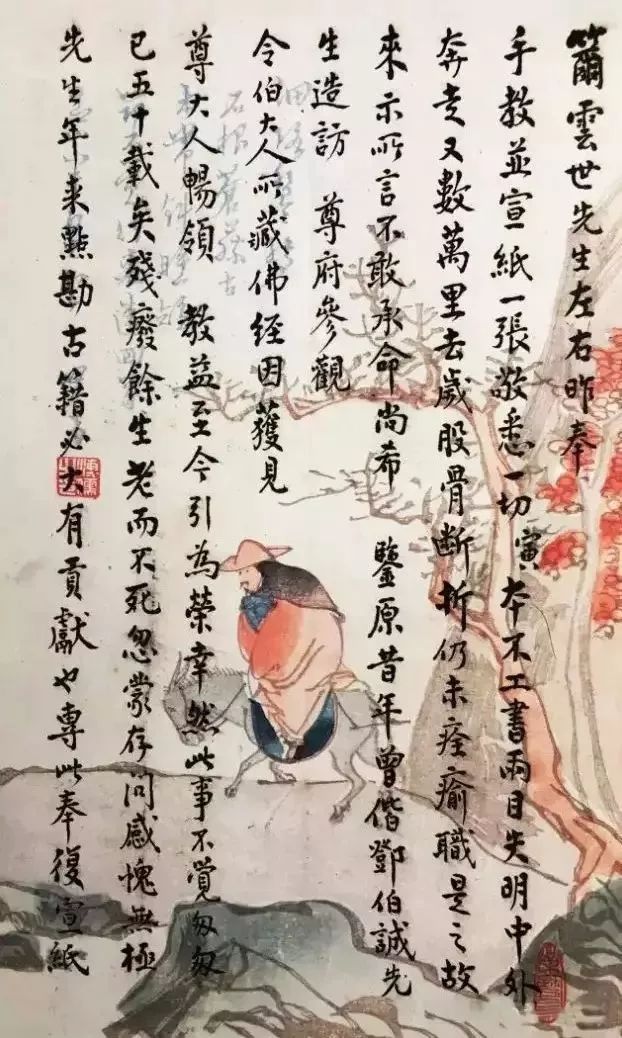 籋雲世先生左右昨奉
手教並宣紙一張敬悉一切寅本不工書兩目失明中外
奔走又數萬里去歲股骨斷折仍未痊瘉職是之故
來示所言不敢承命尚希鑒原昔年曾偕鄧伯誠先
生造訪尊府參觀
令伯大人所藏佛經因獲見
尊大人暢領教益至今引為榮幸然此事不覺匆匆
已五十載矣殘廢餘生老而不死忽蒙存问感愧無極
先生年來點勘古籍必大有貢獻也專此奉復宣紙